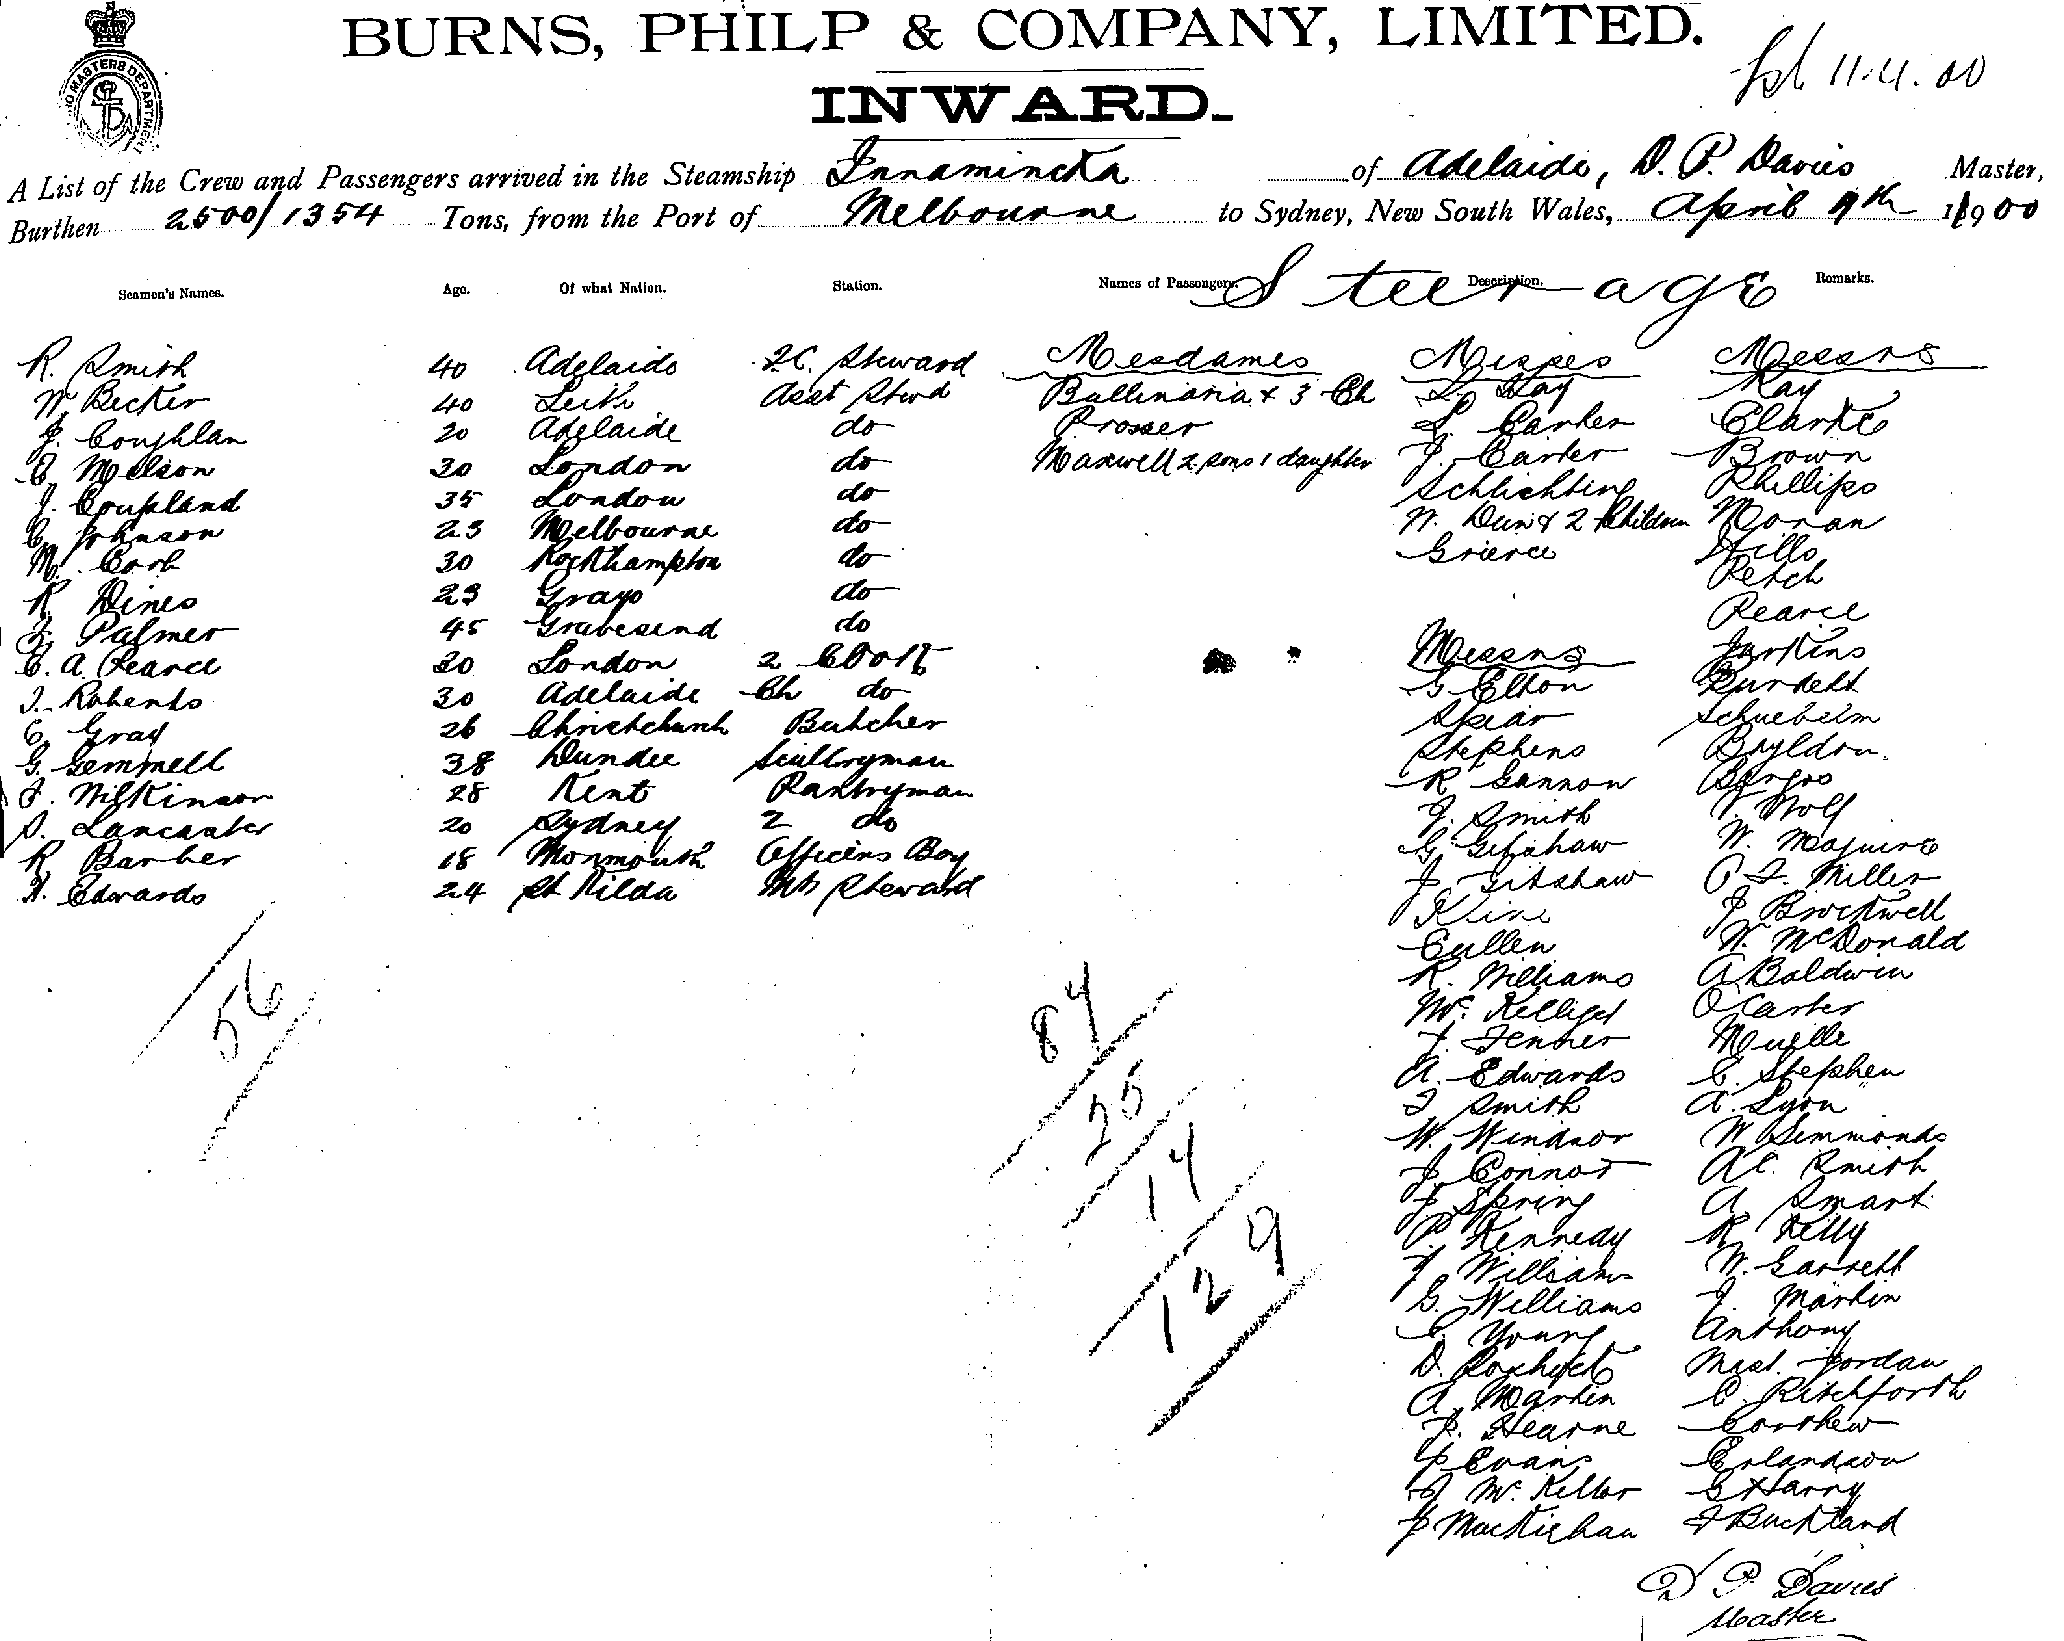 BURNS, PHILP & COMPANY, LIMITED.
11.4.00
INWARD.
MASTERS DEPARTMENT
A List of the Crew and Passengers arrived in the Steamship Innamincka of Adelaide, D. P. Davies Master,
Burthen 2500/1354 Tons, from the Port of Melbourne to Sydney, New South Wales, April 9th 1900
Seamen's Names. Age. Of what Nation. Station. Names of Passengers. Description. Remarks.
Steerage
R. Smith 40 Adelaide F.C. Steward Mesdames Misses Messrs
W Becker 40 Leith Asst Stwd Ballinaria & 3 Ch L. Kay Kay
J. Coughlan 20 Adelaide do Prosser L. Carter Clarke
C Melson 30 London do Maxwell 2 sons 1 daughter J. Carter Brown
J. Coupland 35 London do Schlichting Phillips
C Johnson 23 Melbourne do W. Dun & 2 Children Moran
M. Cork 30 Rockhampton do Grierce Hills
R. Dines 23 Grays do Petch
J. Palmer 45 Gravesend do Pearce
C. A. Pearce 30 London 2 Cook Messrs Jarkins
J. Roberts 30 Adelaide Ch do G Elton Burdett
C Gray 26 Christchurch Butcher Spear Schuebeim
G. Gemmell 38 Dundee Scullryman Stephens Boyldon
J. Wilkinson 28 Kent Pantryman R Gannon Burgos
S. Lancaster 20 Sydney 2 do J. Smith Wolf
R Barber 18 Monmouth Officers Boy G. Gitshaw W. Maguire
H. Edwards 24 St Kilda Mts Steward J Gitshaw P F. Miller
Kline J Brockwell
Cullen W. McDonald
R. Williams A Baldwin
56 84 Mc Kelliget O Carter
F. Fenner Muelle
A. Edwards C. Stephen
25 F Smith A. Lyon
W. Windsor W Simmonds
14 J. Connor A C. Smith
J Spring A Smart
129 P Kennedy R Kelly
Williams W. Garrett
G. Williams J. Martin
C. Young Anthony
D. Mast. Jordan
A Martin C. Ritchforth
J. Hearne Corthew
J Evans Erlandson
J McKellar G Harry
J MacKichan F Buckland
D P. Davies
Master